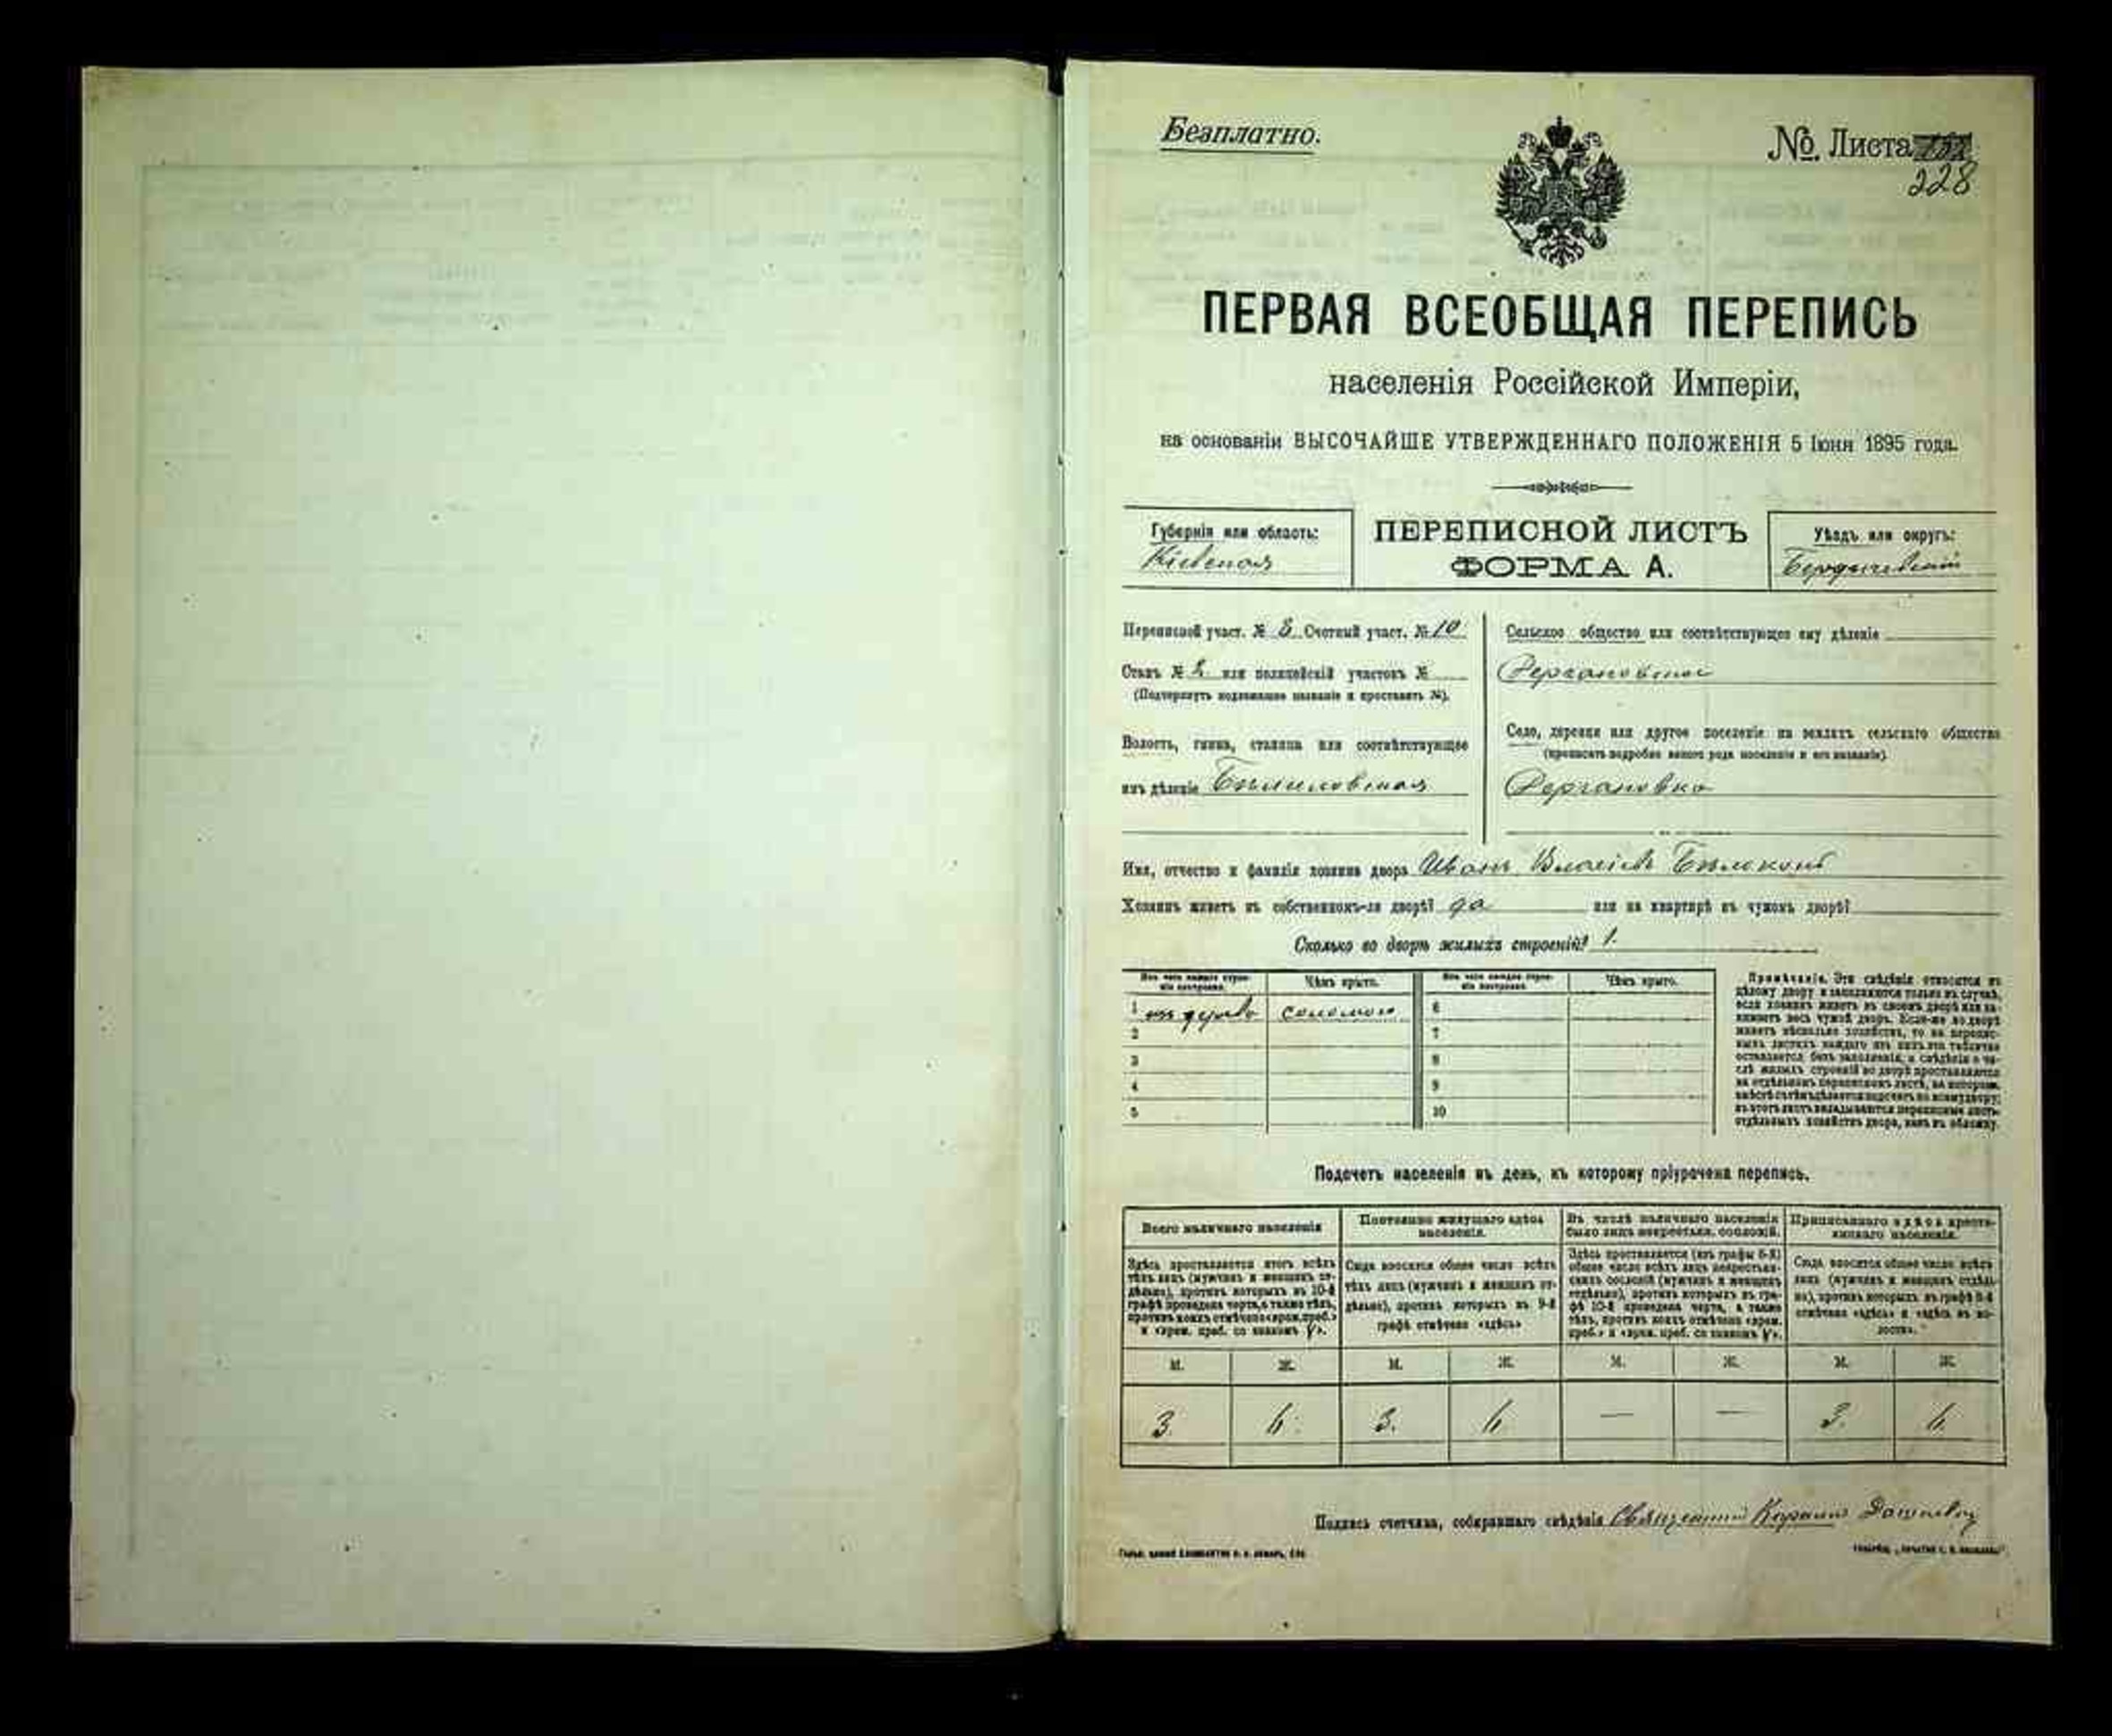 Безплатно.
№ Листа
228
ПЕРВАЯ ВСЕОБЩАЯ ПЕРЕПИСЬ
населенія Россійской Имперіи,
на основаніи ВЫСОЧАЙШЕ УТВЕРЖДЕННАГО ПОЛОЖЕНІЯ 5 Іюня 1895 года.
Губернія или область:
Кіевская
ПЕРЕПИСНОЙ ЛИСТЪ
ФОРМА А.
Уѣздъ или округъ:
Бердичевскій
Переписной участ. № 3 Счетный участ. № 10
Станъ № 2 или полицейскій участокъ №
(Подчеркнуть надлежащее названіе и проставить №).
Волость, гмина, станица или соотвѣтствующее
имъ дѣленіе Бѣлиловская
Сельское общество или соотвѣтствующее ему дѣленіе
Село, деревня или другое поселеніе на земляхъ сельскаго общества
(прописать подробно какого рода поселеніе и его названіе).
Имя, отчество и фамилія хозяина двора Иванъ Власіевъ Бѣлоконь
Хозяинъ живетъ въ собственномъ-ли дворѣ? да или на квартирѣ въ чужомъ дворѣ?
Сколько во дворѣ жилыхъ строеній? 1.
Изъ чего каждое строеніе построено.
Чѣмъ крыто.
Изъ чего каждое строеніе построено.
Чѣмъ крыто.
1 изъ дерева соломою 6
2 7
3 8
4 9
5 10
Примѣчаніе. Эти свѣдѣнія относятся къ
цѣлому двору и заполняются только въ случаѣ,
если хозяинъ живетъ въ своемъ дворѣ или за-
нимаетъ весь чужой дворъ. Если-же во дворѣ
живетъ нѣсколько хозяйствъ, то на перепис-
ныхъ листахъ каждаго изъ нихъ эта табличка
оставляется безъ заполненія, а свѣдѣнія о чи-
слѣ жилыхъ строеній во дворѣ проставляются
на отдѣльномъ переписномъ листѣ, на которомъ
вмѣстѣ съ тѣмъ дѣлается подсчетъ по всему двору;
въ этотъ листъ вкладываются переписные листы
отдѣльныхъ хозяйствъ двора, какъ въ обложку.
Подсчетъ населенія въ день, къ которому пріурочена перепись.
Всего наличнаго населенія
Постоянно живущаго здѣсь населенія.
Въ числѣ наличнаго населенія было лицъ некрестьян. сословій.
Приписаннаго здѣсь крестьянскаго населенія.
Здѣсь проставляется итогъ всѣхъ
тѣхъ лицъ (мужчинъ и женщинъ от-
дѣльно), противъ которыхъ въ 10-й
графѣ проведена черта, а также тѣхъ,
противъ коихъ отмѣчено «врем. преб.»
и «врем. преб. со знакомъ V».
Сюда вносится общее число всѣхъ
тѣхъ лицъ (мужчинъ и женщинъ от-
дѣльно), противъ которыхъ въ 9-й
графѣ отмѣчено «здѣсь»
Здѣсь проставляется (изъ графы 5-й)
общее число всѣхъ лицъ некрестьян-
скихъ сословій (мужчинъ и женщинъ
отдѣльно), противъ которыхъ въ гра-
фѣ 10-й проведена черта, а также
тѣхъ, противъ коихъ отмѣчено «врем.
преб.» и «врем. преб. со знакомъ V».
Сюда вносится общее число всѣхъ
лицъ (мужчинъ и женщинъ отдѣль-
но), противъ которыхъ въ графѣ 8-й
отмѣчено «здѣсь» и «здѣсь въ во-
лости».
М. Ж. М. Ж. М. Ж. М. Ж.
3. 6. 3. 6 — — 3. 6.
Подпись счетчика, собиравшаго свѣдѣнія Священникъ